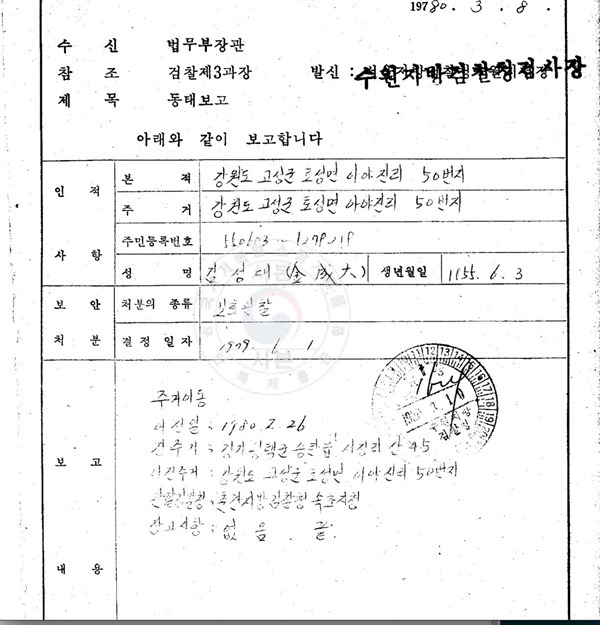 1980. 3. 8.
수 신 법무부장관
참 조 검찰제3과장 발신 : 수원지방검찰청검사장
제 목 동태보고
아래와 같이 보고합니다
인 적 사 항
본 적 강원도 고성군 토성면 아야진리 50번지
주 거 강원도 고성군 토성면 아야진리 50번지
주민등록번호
성 명 김성대 (金成大) 생년월일 1955. 6. 3
보 안 처 분
처분의 종류 보호관찰
결정 일자 1979. 1
보 고 내 용
주거이동
이전일 : 1980. 2. 26
전주거 : 경기 평택군 송탄읍 서정리 산 45
이전주거 : 강원도 고성군 토성면 아야진리 50번지
관할검찰청 : 춘천지방검찰청 속초지청
참고사항 : 없 음. 끝.